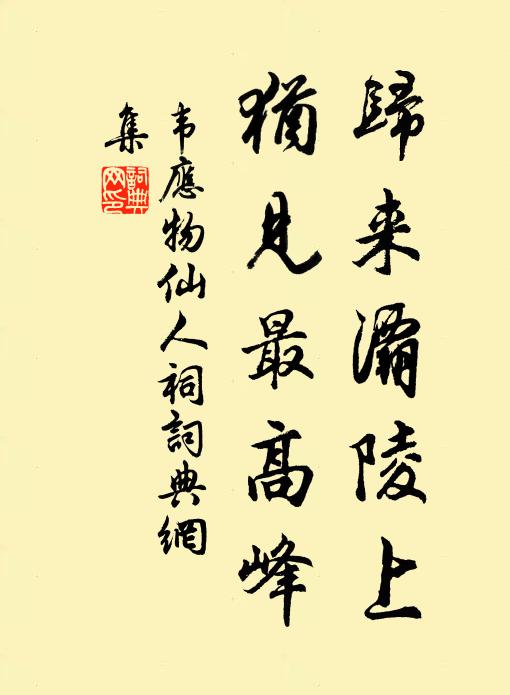 歸来灞陵上
猶見最高峰
韦應物仙人祠詞典網
集
詞典
网印